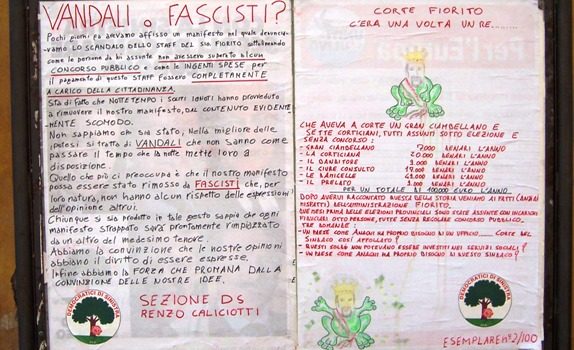 VANDALI o FASCISTI?
Pochi giorni fa avevamo affisso un manifesto nel quale denunciavamo
LO SCANDALO DELLO STAFF DEL SIG. FIORITO sottolineando
come le persone da lui assunte non avessero superato alcun
CONCORSO PUBBLICO e come le INGENTI SPESE per
il pagamento di questo STAFF fossero COMPLETAMENTE
A CARICO DELLA CITTADINANZA.
Sta di fatto che NOTTETEMPO i SOLITI IGNOTI hanno provveduto
a rimuovere il nostro manifesto, DAL CONTENUTO EVIDENTE-
MENTE SCOMODO.
Non sappiamo chi sia stato, Nella migliore delle
ipotesi si tratta di VANDALI che non sanno come
passare il tempo che la notte mette loro a
disposizione.
Quello che più ci preoccupa è che il nostro manifesto
possa essere stato rimosso da FASCISTI che, per
loro natura, non hanno alcun rispetto delle espressioni
dell'opinione altrui.
Chiunque si sia prodotto in tale gesto sappia che ogni
manifesto strappato sarà prontamente rimpiazzato
da un altro del medesimo tenore.
Abbiamo la convinzione che le nostre opinioni
abbiano il diritto di essere espresse.
Infine abbiamo la FORZA CHE PROMANA DALLA
CONVINZIONE DELLE NOSTRE IDEE.
SEZIONE DS
RENZO CALICIOTTI
DEMOCRATICI DI SINISTRA
CORTE FIORITO
C'ERA UNA VOLTA UN RE.......
CHE AVEVA A CORTE UN GRAN CIAMBELLANO E
SETTE CORTIGIANI, TUTTI ASSUNTI SOTTO ELEZIONE E
SENZA CONCORSO:
- GRAN CIAMBELLANO 7.000 DENARI L'ANNO
- LA CORTIGIANA 20.000 DENARI L'ANNO
- IL DANDITORE 3.000 DENARI L'ANNO
- IL GIURE CONSULTO 19.000 DENARI L'ANNO
- LE ANCELLE 48.000 DENARI L'ANNO
- IL PRELATO 3.000 DENARI L'ANNO
PER UN TOTALE DI 100000 EURO L'ANNO
DOPO AVERVI RACCONTATO QUESTA STORIA VENIAMO AI FATTI
RISPETTI DELL'AMMINISTRAZIONE FIORITO.
DUE MESI PRIMA DELLE ELEZIONI PROVINCIALI SONO STATE ASSUNTE CON INCARICHI
FIDUCIARI OTTO PERSONE, TUTTE SENZA REGOLARE CONCORSO PUBBLICO.
TRE DOMANDE:
- UN PAESE COME ANAGNI HA PROPRIO BISOGNO DI UN UFFICIO...... CORTE DEL
SINDACO COSÌ AFFOLLATO?
- QUESTI SOLDI NON POTEVANO ESSERE INVESTITI NEI SERVIZI SOCIALI?
- UN PAESE COME ANAGNI HA PROPRIO BISOGNO DI QUESTO SINDACO?
DEMOCRATICI DI SINISTRA
ESEMPLARE n°2/100